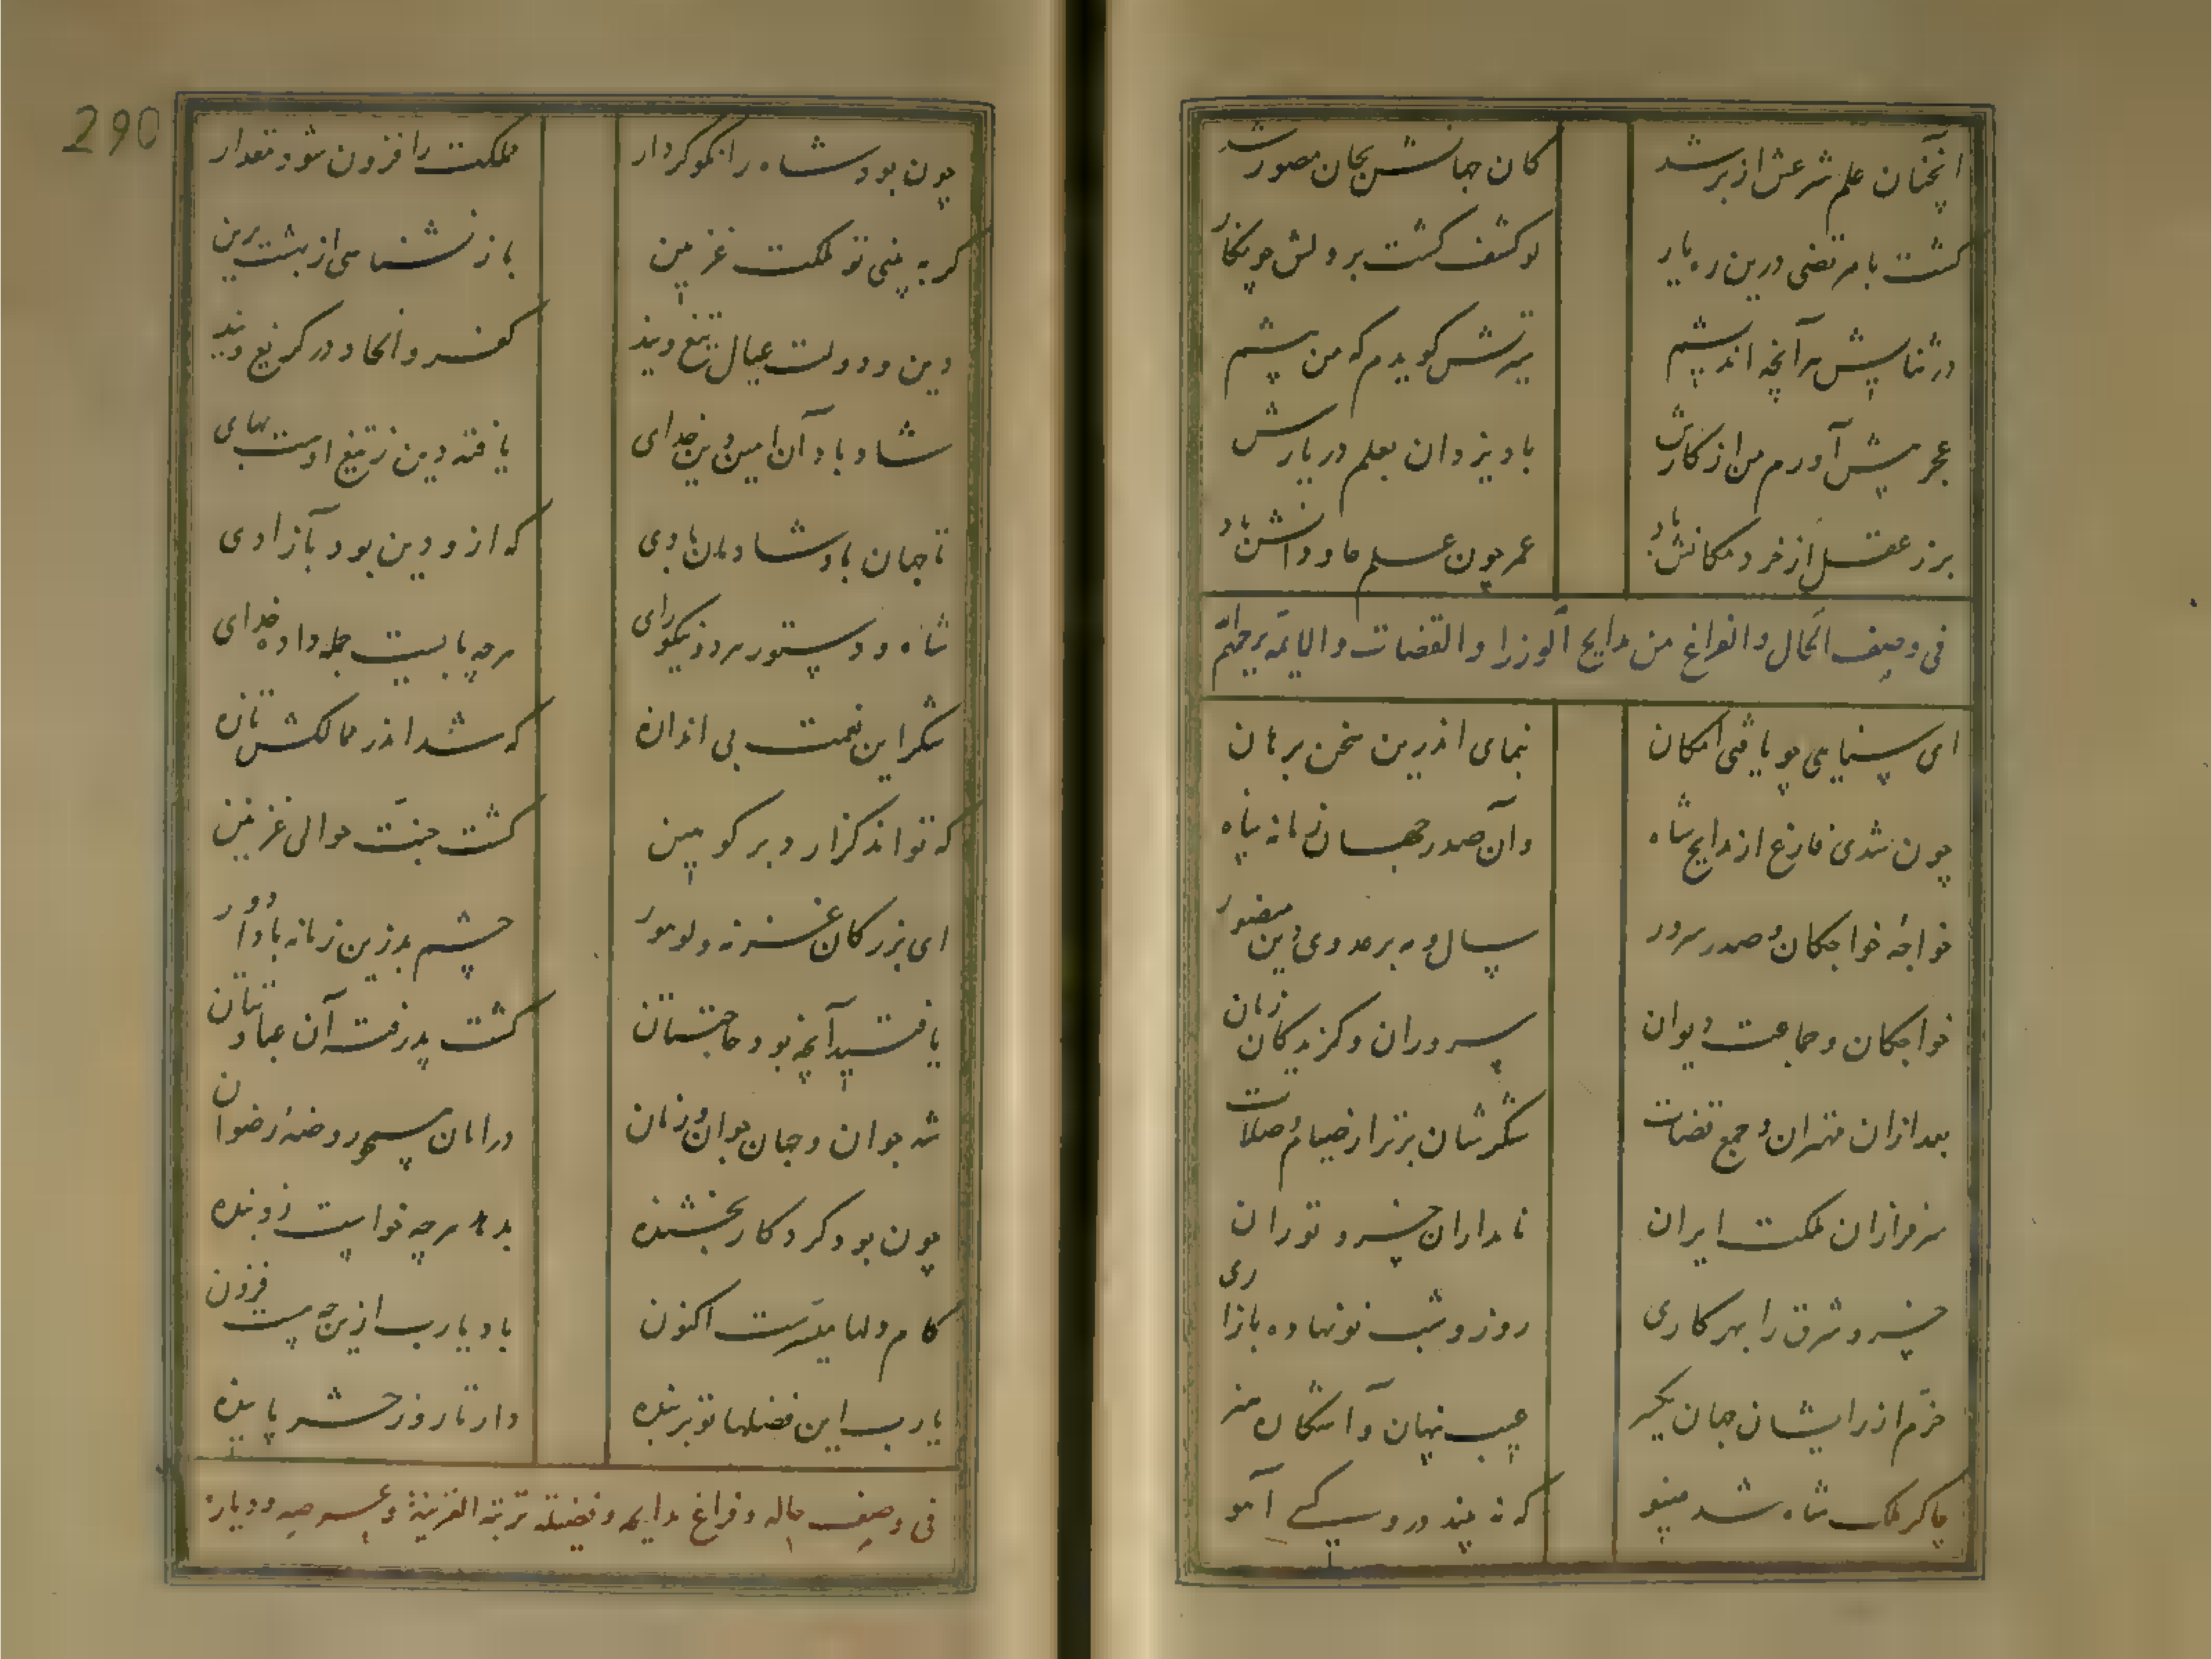 انچنان علم شرعش از بر شد کان جهانش بجان مصور شد
گشت با مرتضی درین ره یار لو کشف گشت بر دلش چو نگار
در ثنا پیش هرآنچه اندیشم تیرش گویدم که من پیشم
عجز پیش آورم من از کارش باد یزدان بعلم در یارش
برز عقل از خرد مکانش باد عمر چون علم جاودانش باد
فی وصف الحال والفراغ من مدایح الوزرا والقضات والایمه یرحمهم الله
ای سنایی چو یافتی امکان بنمای اندرین سخن برهان
چون شدی فارغ از مدایح شاه وآن صدر جهان زمانه پناه
خواجه خواجگان و صدر سرور سال و مه بر عدوی دین منصور
خواجگان و جماعت دیوان سروران و گزیدگان زمان
بعد ازان مهتران و جمع قضات شکرشان برتر از صیام و صلات
سرفرازان ملکت ایران نامداران خسرو توران
خسرو شرق را بهر کاری روز و شب نو نهاده بازاری
خرم از رایشان جهان یکسر عیب پنهان و آشکاره هنر
چاکر ملک شاه شد مینو که نه بیند درو کسی آهو
290
چون بود شاه را نکو کردار مملکت را فزون شود مقدار
گر به بینی تو ملکت غزنین باز نشناسی از بهشت برین
دین و دولت عیال تیغ ویند کفر و الحاد در گریغ ویند
شاد باد آن امین دین خدای یافته دین ز تیغ اوست بهای
تا جهان باد شادمان بادی که ازو دین بود بآزادی
شاه و دستور مرد و نیکورای هرچه بایست جمله داده خدای
شکر این نعمت بی اندازه که شد اندر ممالکش تازه
که تواند گزارد بر گو بین گشت جنت حوالی غزنین
ای بزرگان غزنه و لوهور چشم بد زین زمانه بادا دور
یافتید آنچه بود حاجتتان گشت پذرفته آن عبادتتان
شه جوان و جهان جوان و زمان در امان همچو روضه رضوان
چون بود کردگار بخشنده بدهد هرچه خواست زو بنده
کام دلها میسرست اکنون باد یارب ازین که هست فزون
یارب این فضلها تو بر بنده دار تا روز حشر پاینده
فی وصف حاله وفراغ مدایحه وفضیلة تربة الغزنین وعرصه ودیاره